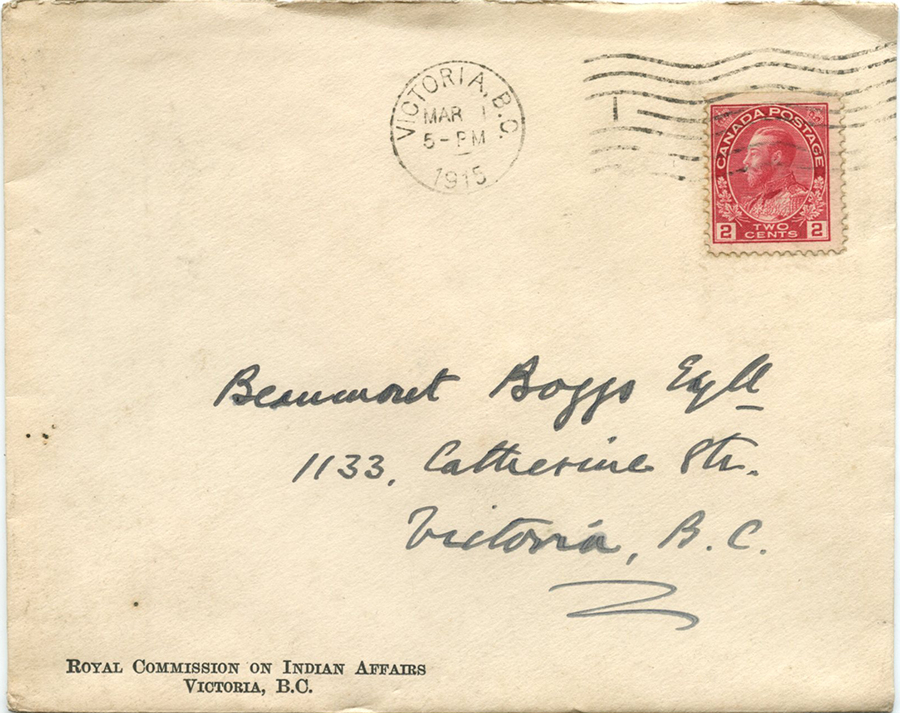 VICTORIA, B.C.
MAR 1
5-PM
1915
CANADA POSTAGE
2 TWO CENTS 2
Beaumont Boggs
1133, Catherine Str.
Victoria, B.C.
ROYAL COMMISSION ON INDIAN AFFAIRS
VICTORIA, B.C.